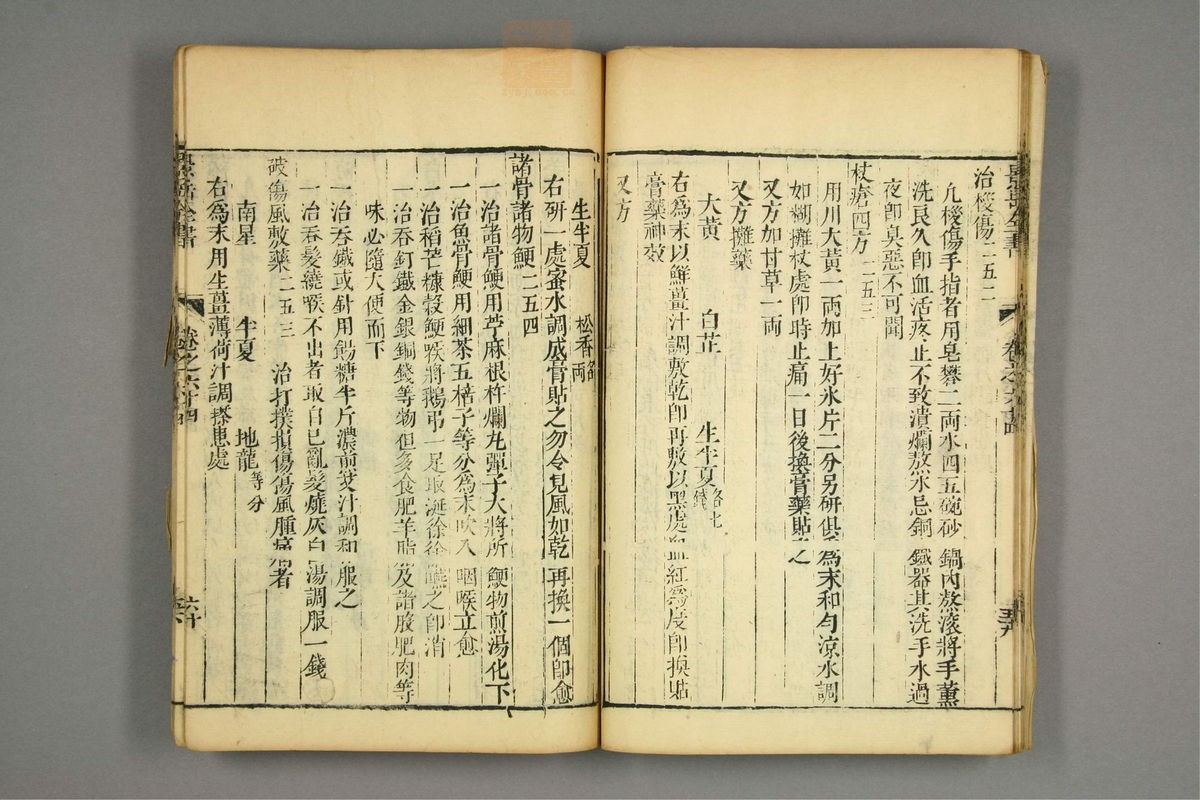 治椶傷二五二
凢椶傷手指者用皂礬二兩水四五碗砂鍋內熬滚將手薰
洗良久卽血活疼止不致潰爛熬水忌銅鐵器其洗手水過
夜卽臭惡不可聞
杖瘡四方二五三
用川大黃一兩加上好氷片二分另研俱爲末和勻凉水調
如糊攤杖處卽時止痛一日後換膏藥貼之
又方加甘草一兩
又方攤藥
大黃 白芷 生半夏各七錢
右爲末以鮮薑汁調敷乾卽再敷以黑處血紅爲度卽換貼
膏藥神效
又方
生半夏 松香各 兩
右研一處蜜水調成膏貼之勿令見風如乾再換一個卽愈
諸骨諸物鯁二五四
一治諸骨鯁用苧麻根杵爛丸彈子大將所鯁物煎湯化下
一治魚骨鯁用細茶五棓子等分爲末吹入咽喉立愈
一治稻芒糠穀鯁喉將鵝弔一足取涎徐徐嚥之卽消
一治吞釘鐵金銀銅錢等物但多食肥羊脂及諸般肥肉等
味必隨大便而下
一治吞鐵或針用餳糖半斤濃煎艾汁調和服之
一治吞髮繞喉不出者取自己亂髮燒灰白湯調服一錢
破傷風敷藥二五三 治打撲損傷傷風腫痛者
南星 半夏 地龍等分
右爲末用生薑薄荷汁調搽患處
景岳全書
卷之六十四
六十